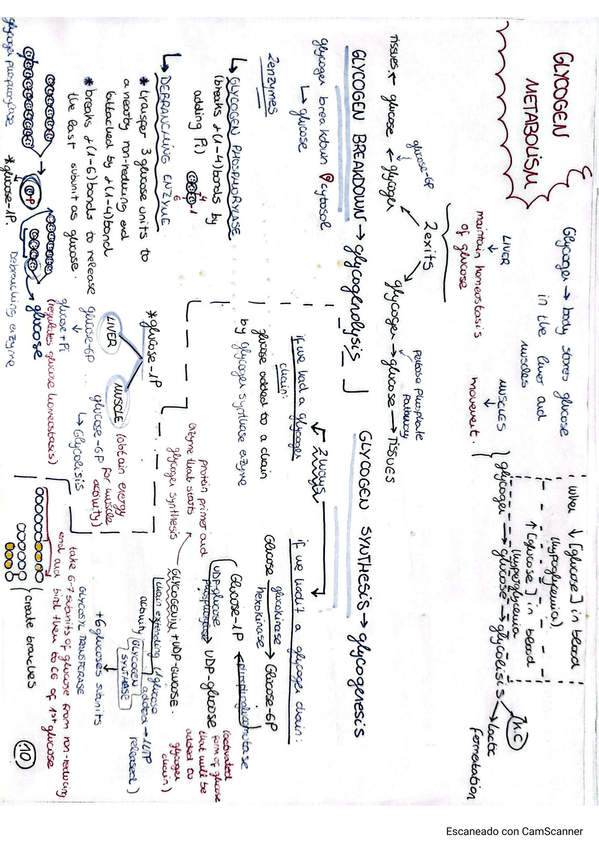 GLYCOGEN
METABOLISM
Glycogen → body stores glucose
in the liver and
muscles
LIVER
↓
maintain homeostasis
of glucose
MUSCLES
↓
movement.
When ↓ [glucose] in blood
(hypoglycemia)
↑ [glucose] in blood
(hyperglycemia
glycogen → glucose → glycolisis
lactic
fermentation
2 exits
glucose-6P
TISSUES ← glucose ← glycogen
glycogen → glucose → TISSUES
pentose phosphate
pathway
GLYCOGEN BREAKDOWN → glycogenolysis
glycogen breakdown @ cytosol
↳ glucose
2 enzymes
↳ GLYCOGEN PHOSPHORYLASE
(breaks α(1-4) bonds by
adding Pi)
↳ DEBRANCHING ENZYME
* transfer 3 glucose units to
a nearby non-reducing end
(attached by α(1-4) bond
* breaks α(1-6) bonds to release
the last subunit as glucose.
glycogen phosphorylase
* glucose-1P.
Debranching enzyme
glucose
(regulates glucose homeostasis)
* glucose-1P
LIVER
glucose-6P
↓
glucose + Pi
MUSCLE (obtain energy
for muscle
activity)
glucose-6P
↳ Glycolisis
GLYCOGEN SYNTHESIS → glycogenesis
2 ways
if we had a glycogen
chain:
glucose added to a chain
by glycogen synthase enzyme
if we hadn't a glycogen chain:
Glucose → Glucose-6P
glucokinase
hexokinase
Glucose-1P
UDP-glucose
phosphorylase
UDP-glucose
(activated
form of glucose
that will be
added to
glycogen
chain)
protein primer and
enzyme that starts
glycogen synthesis
GLYCOGENIN + UDP-GLUCOSE.
(chain expanding (1 glucose
activity added → 1 UTP
released)
GLYCOGEN
SYNTHASE
+6 glucoses subunits
GLYCOSYL TRANSFERASE
take 6-7 subunits of glucose from non-reducing
end and bind them to C6 of 1st glucose
(create branches
10
Escaneado con CamScanner